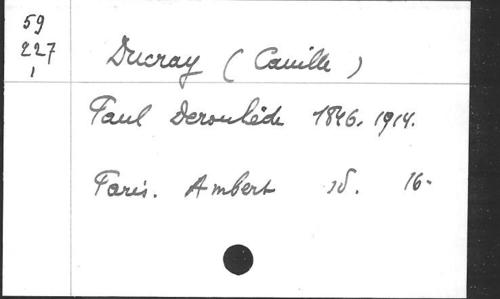 59
227
1
Ducray (Camille)
Paul Deroulède 1846. 1914.
Paris. Ambert sd. 16-